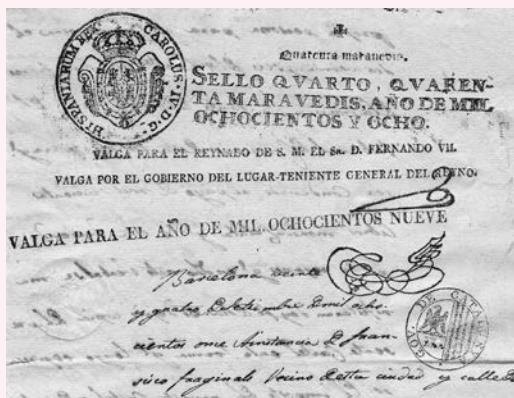 HISPANIARUM REX CAROLUS·IV·D·G·
Quarenta maravedis.
SELLO QVARTO, QVAREN-
TA MARAVEDIS, AÑO DE MIL
OCHOCIENTOS Y OCHO.
VALGA PARA EL REYNADO DE S. M. EL Sr. D. FERNANDO VII.
VALGA POR EL GOBIERNO DEL LUGAR-TENIENTE GENERAL DEL REYNO.
VALGA PARA EL AÑO DE MIL OCHOCIENTOS NUEVE
Barcelona veinte
y quatro de mil ocho-
cientos once Ainstancia D Fran-
sisco fraginals Vecino desta ciudad y calle
GOV. DE CATALUÑA